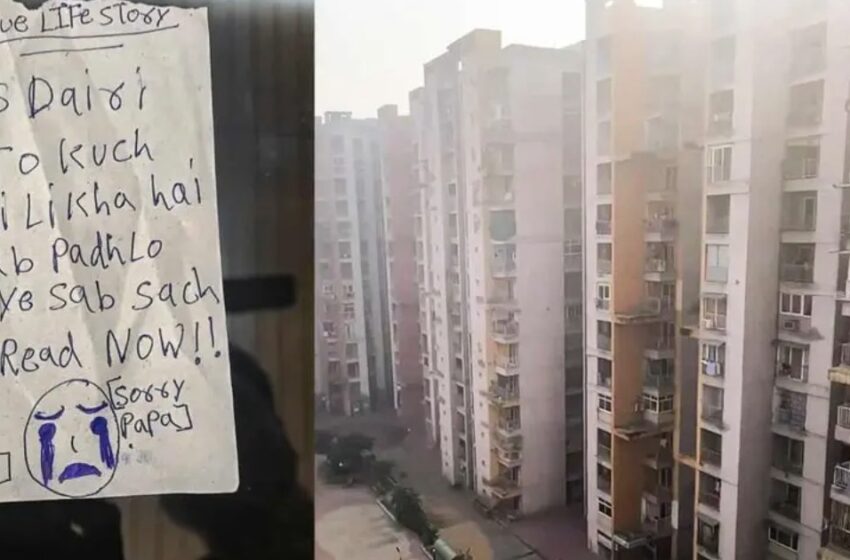 LIFE STORY
Dairi
Kuch
Likha hai
PadhLo
ye sab sach
Read NOW!!
[Sorry
Papa]